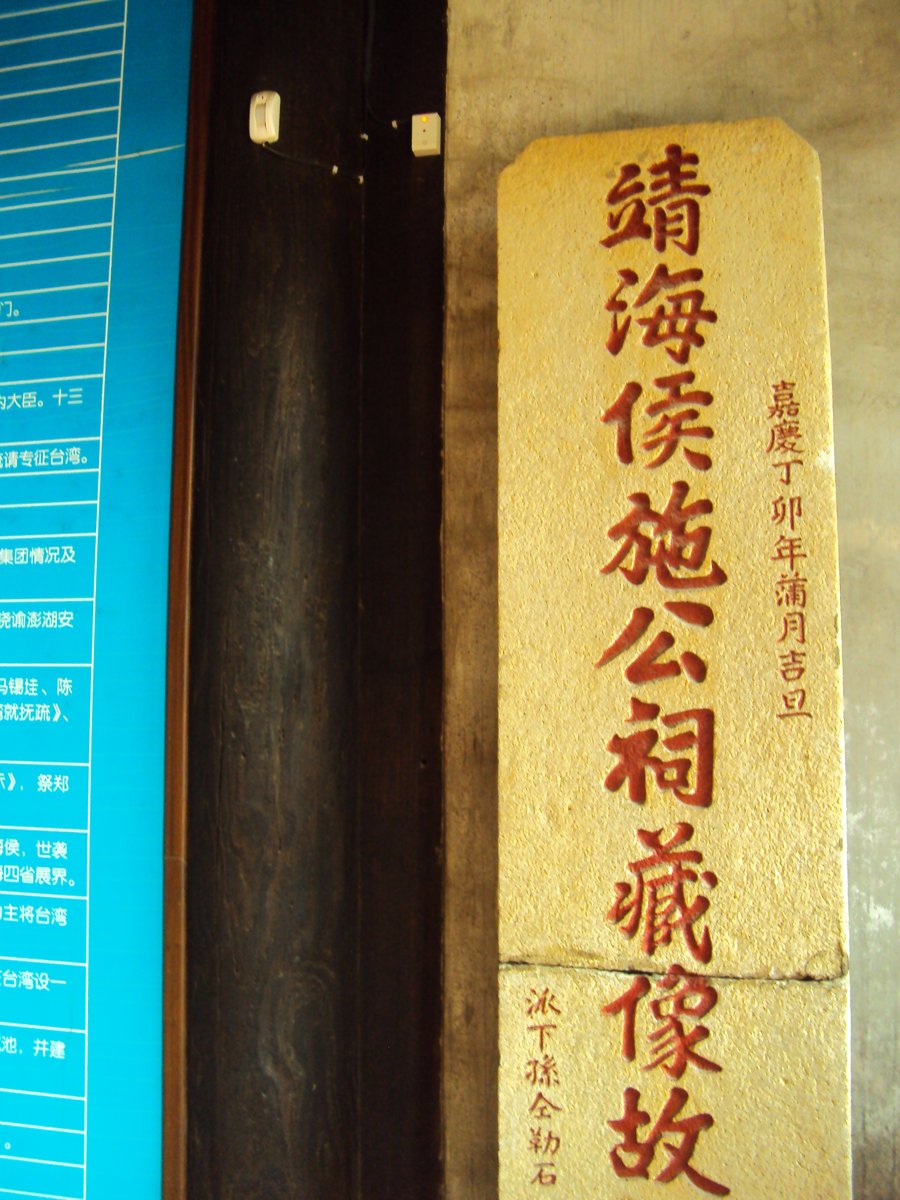 门。
内大臣。十三
疏请专征台湾。
集团情况及
晓谕澎湖安
冯锡珪、陈
湾就抚疏》、
示》，祭郑
海侯，世袭
海四省展界。
主将台湾
台湾设一
池，并建
。
嘉慶丁卯年蒲月吉旦
靖海侯施公祠藏像故
派下孫仝勒石